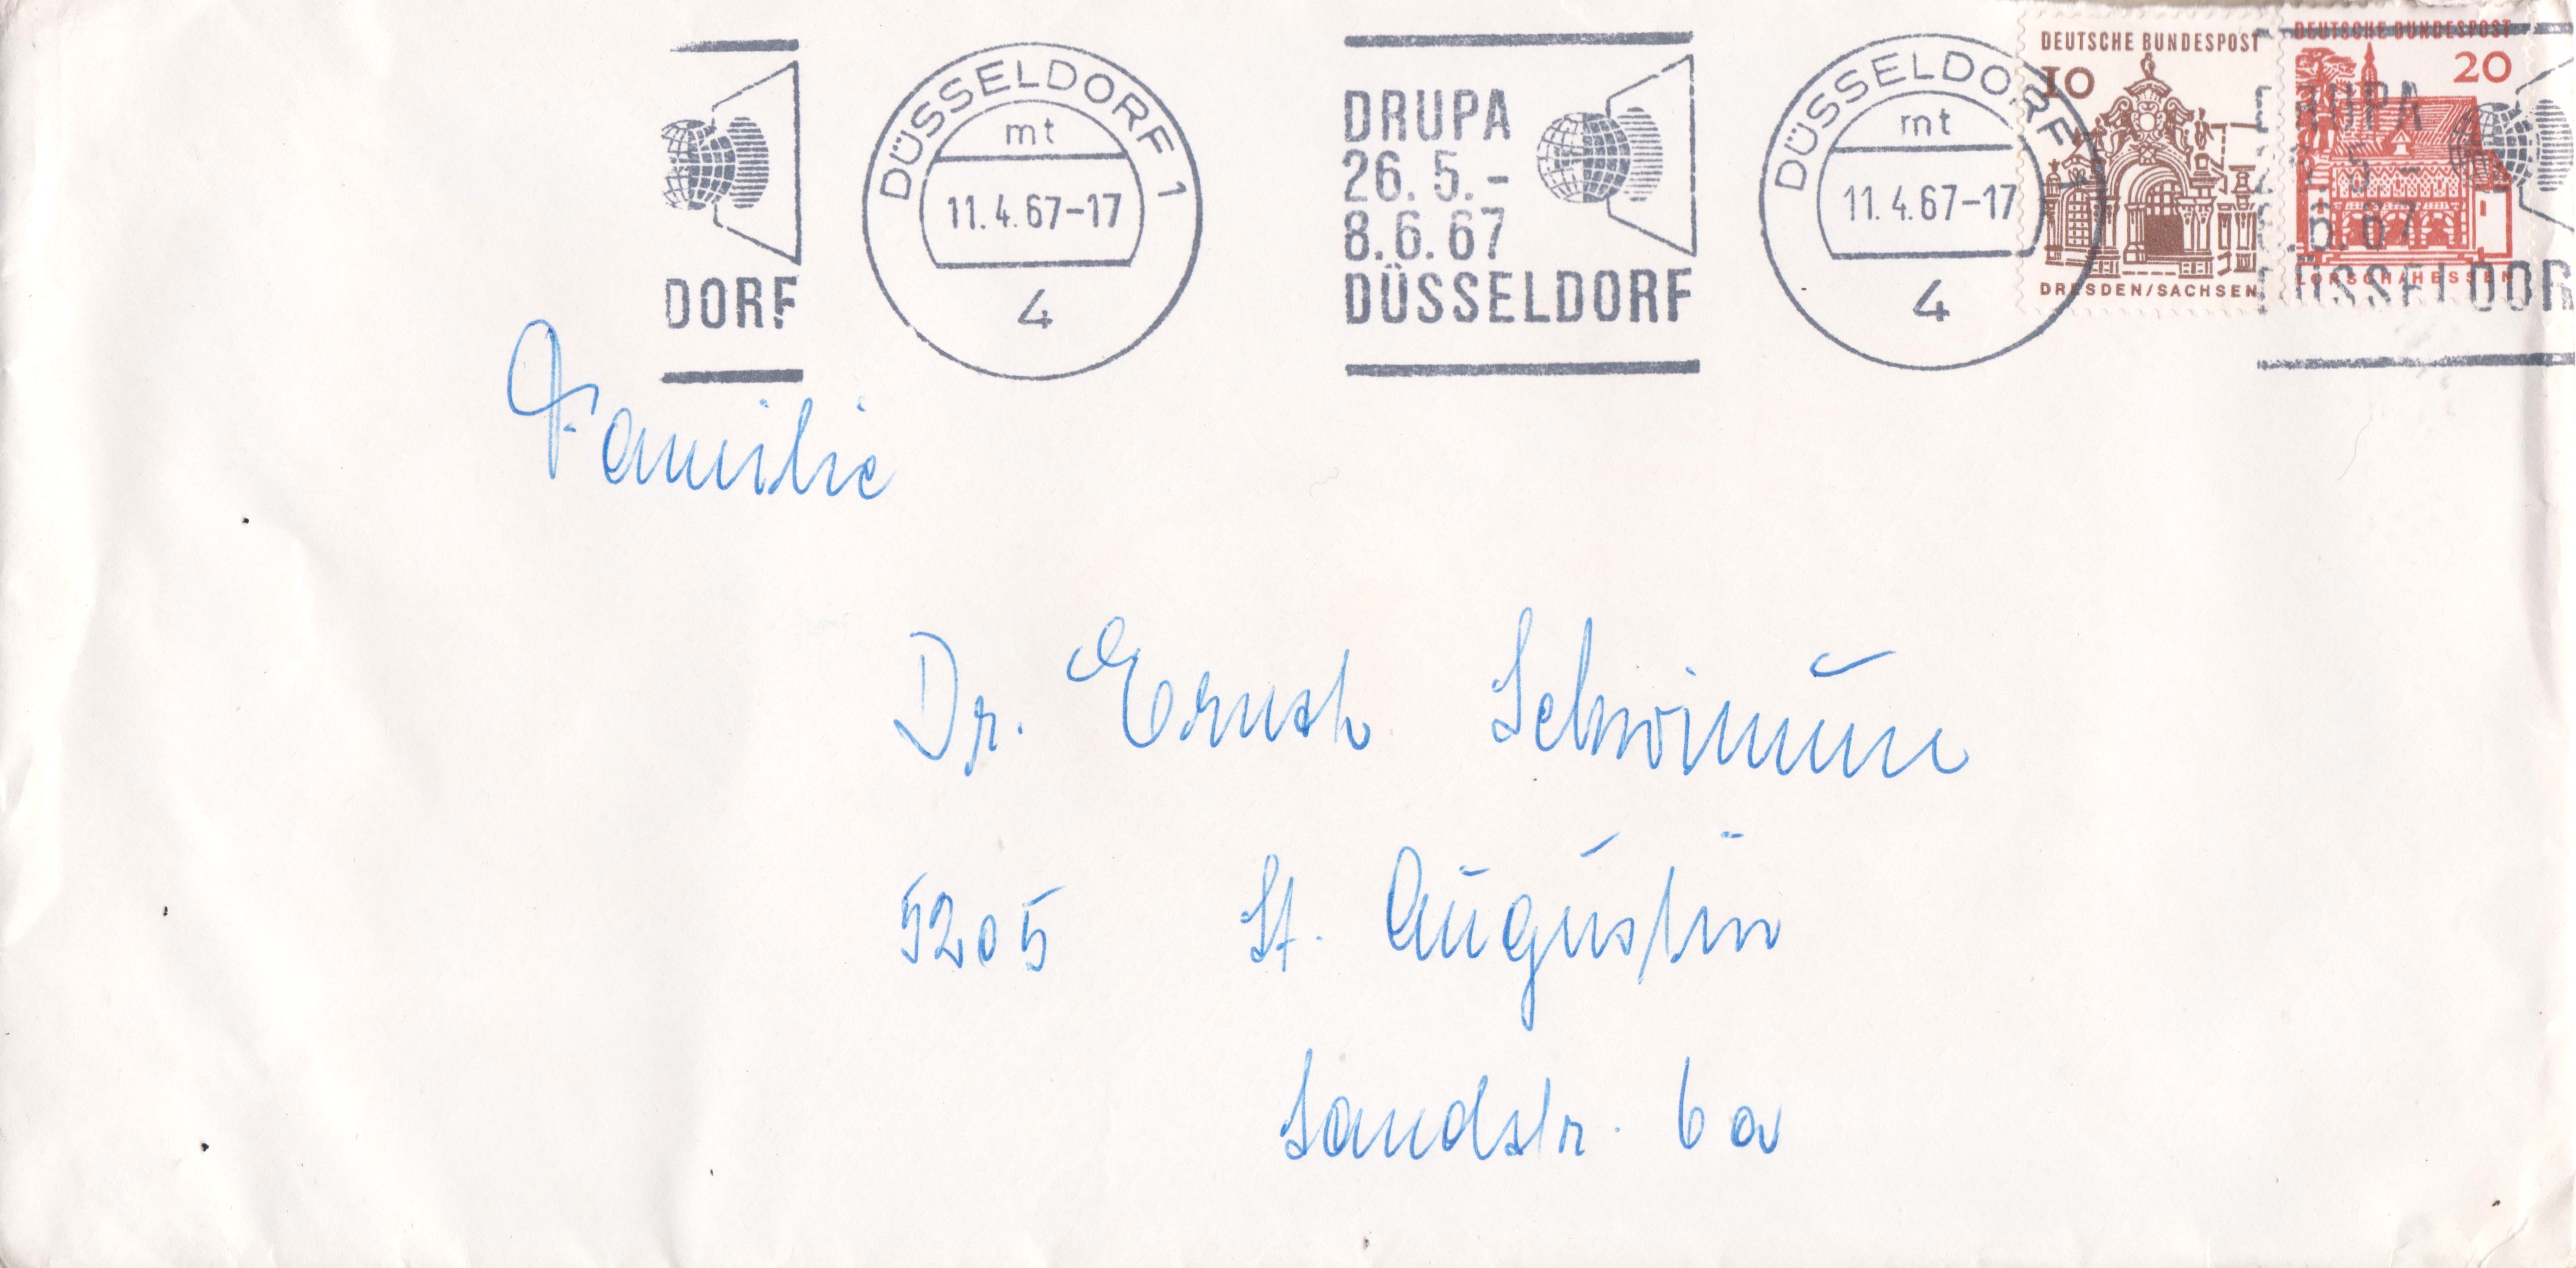 DORF
DÜSSELDORF 1
mt
11.4.67-17
4
DRUPA
26.5.-
8.6.67
DÜSSELDORF
DÜSSELDORF 1
mt
11.4.67-17
4
DEUTSCHE BUNDESPOST
10
DRESDEN/SACHSEN
DEUTSCHE BUNDESPOST
20
LORSCH/HESSEN
DRUPA
26.5.-
8.6.67
DÜSSELDOR
Familie
Dr. Ernst
5205 St. Augustin
Sandstr. 6a